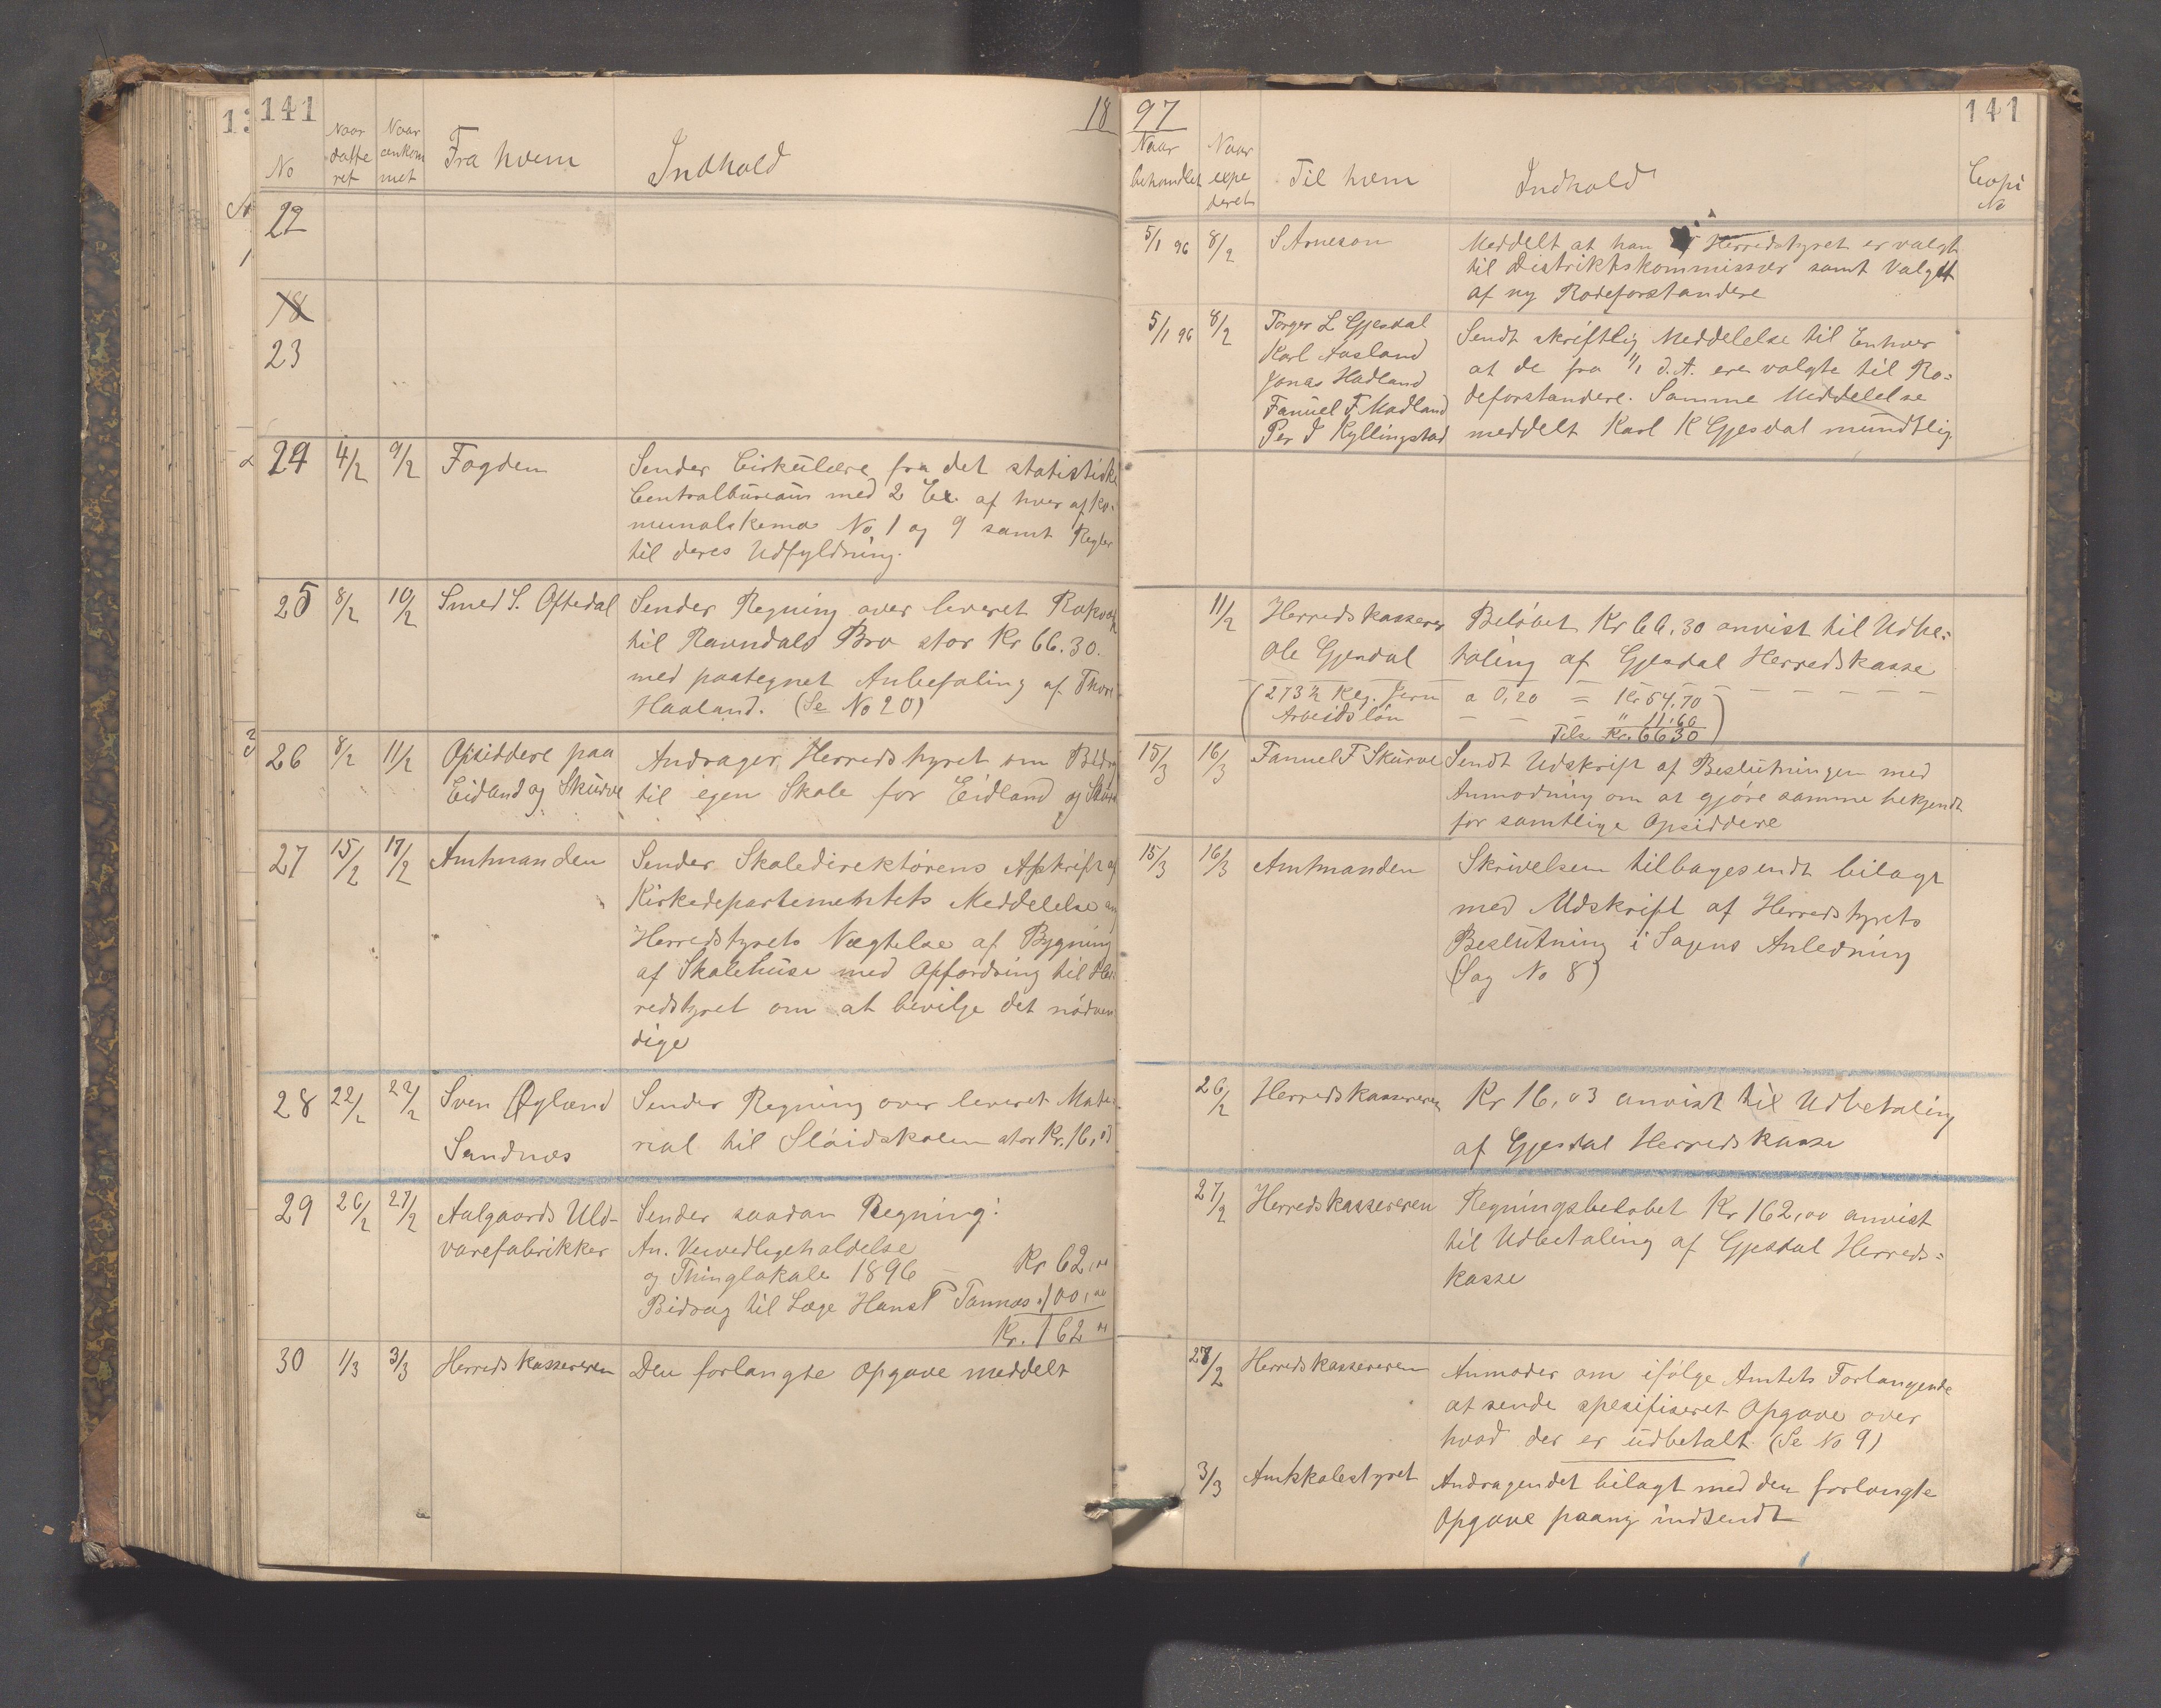 141
18
No
Naar datte ret
Naar ankom met
Fra hvem
Indhold
22
18
23
24
4/2
9/2
Fogden
Sender Cirkulære fra det statistiske
Centralbureau med 2 Ex. af hver af Ko-
munalskema No 1 og 9 samt Regler
til deres Udfyldning.
25
8/2
10/2
Smed S. Oftedal
Sender Regning over leveret Rækværk
til Ravndals Bro stor Kr 66.30.
med paategnet Anbefaling af Thore
Haaland. (Se No 20)
26
8/2
11/2
Opsiddere paa
Eidland og Skurve
Andrager Herredstyret om Bidrag
til egen Skole for Eidland og Skurve
27
15/2
17/2
Amtmanden
Sender Skoledirektørens Afskrift af
Kirkedepartementets Meddelelse
Herredstyrets Nægtelse af Bygning
af Skolehuse med Opfordring til Her-
redstyret om at bevilge det nødven
dige
28
22/2
22/2
Sven Øglænd
Sandnæs
Sender Regning over leveret Mate-
rial til Sløidskolen stor Kr. 16,03
29
26/2
27/2
Aalgaards Uld-
varefabrikker
Sender saadan Regning:
An. Vervedligeholdelse
og Thinglokale 1896 — Kr 62,00
Bidrag til Læge Hans P Tannæs " 100,00
Kr. 162 00
30
1/3
3/3
Herredskassereren
Den forlangte Opgave meddelt
97
141
Naar behandlet
Naar expe deret
Til hvem
Indhold
Copi No
5/1 96
8/2
S Arneson
Meddelt at han Herredstyret er valgt
til Distriktskommissær samt Valget
af ny Rodeforstandere
5/1 96
8/2
Torger L Gjesdal
Karl Aasland
Jonas Hadland
Fanuel F Madland
Per J Kyllingstad
Sendt skriftlig Meddelelse til Enhver
at de fra 1/1 d.A. ere valgte til Ro-
deforstandere. Samme Meddelelse
meddelt Karl K Gjesdal mundtlig
11/2
Herredskasserer
Ole Gjesdal
Beløbet Kr 66,30 anvist til Udbe-
taling af Gjesdal Herredskasse
(273½ Klg. Jern a 0,20 = Kr 54,70
Arbeidsløn — — — " 11,60)
Tils Kr. 66 30
15/3
16/3
Fanuel F Skurve
Sendt Udskrift af Beslutningen med
Anmodning om at gjøre samme bekjendt
for samtlige Opsiddere
15/3
16/3
Amtmanden
Skrivelsen tilbagesendt bilagt
med Udskrift af Herredstyrets
Beslutning i Sagens Anledning
(Sag No 8)
26/2
Herredskassereren
Kr 16,03 anvist til Udbetaling
af Gjesdal Herredskasse
27/2
Herredskassereren
Regningsbeløbet Kr 162,00 anvist
til Udbetaling af Gjesdal Herreds-
kasse
28/2
Herredskassereren
Anmoder om ifølge Amtets Forlangende
at sende spesifiseret Opgave over
hvad der er udbetalt (Se No 9)
3/3
Amtskolestyret
Andragendet bilagt med den forlangte
Opgave paany indsendt